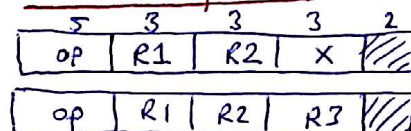 5 3 3 3 2
op R1 R2 X
op R1 R2 R3